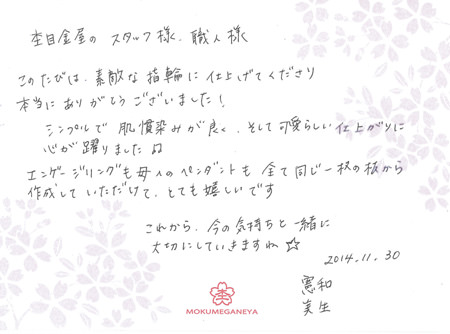 杢目金屋の スタッフ様、職人様
このたびは、素敵な指輪に仕上げてくださり
本当にありがとうございました!
シンプルで肌慣染みが良く、そして可愛らしい仕上がりに
心が躍りました♫
エンゲージリングも母へのペンダントも全て同じ一枚の板から
作成していただけて、とても嬉しいです
これから、今の気持ちと一緒に
大切にしていきますね☆
2014.11.30
憲和
美生
MOKUMEGANEYA